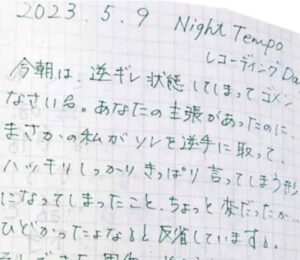 2023.5.9 Night Tempo
レコーディングDa
今朝は、逆ギレ状態してしまってゴメン
なさいね。あなたの主張があったのに、
まさかの私がソレを逆手に取って、
ハッキリしっかりきっぱり言ってしまう形
になってしまったこと、ちょっと変だったか
ひどかったよなぁと反省しています。